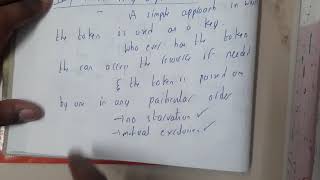 A simple approach in
the token is used as a key
who ever has the token
can access the resource if needed
& the token is passed on
by one in any particular order
→ no starvation ✓
→ mutual exclusion ✓